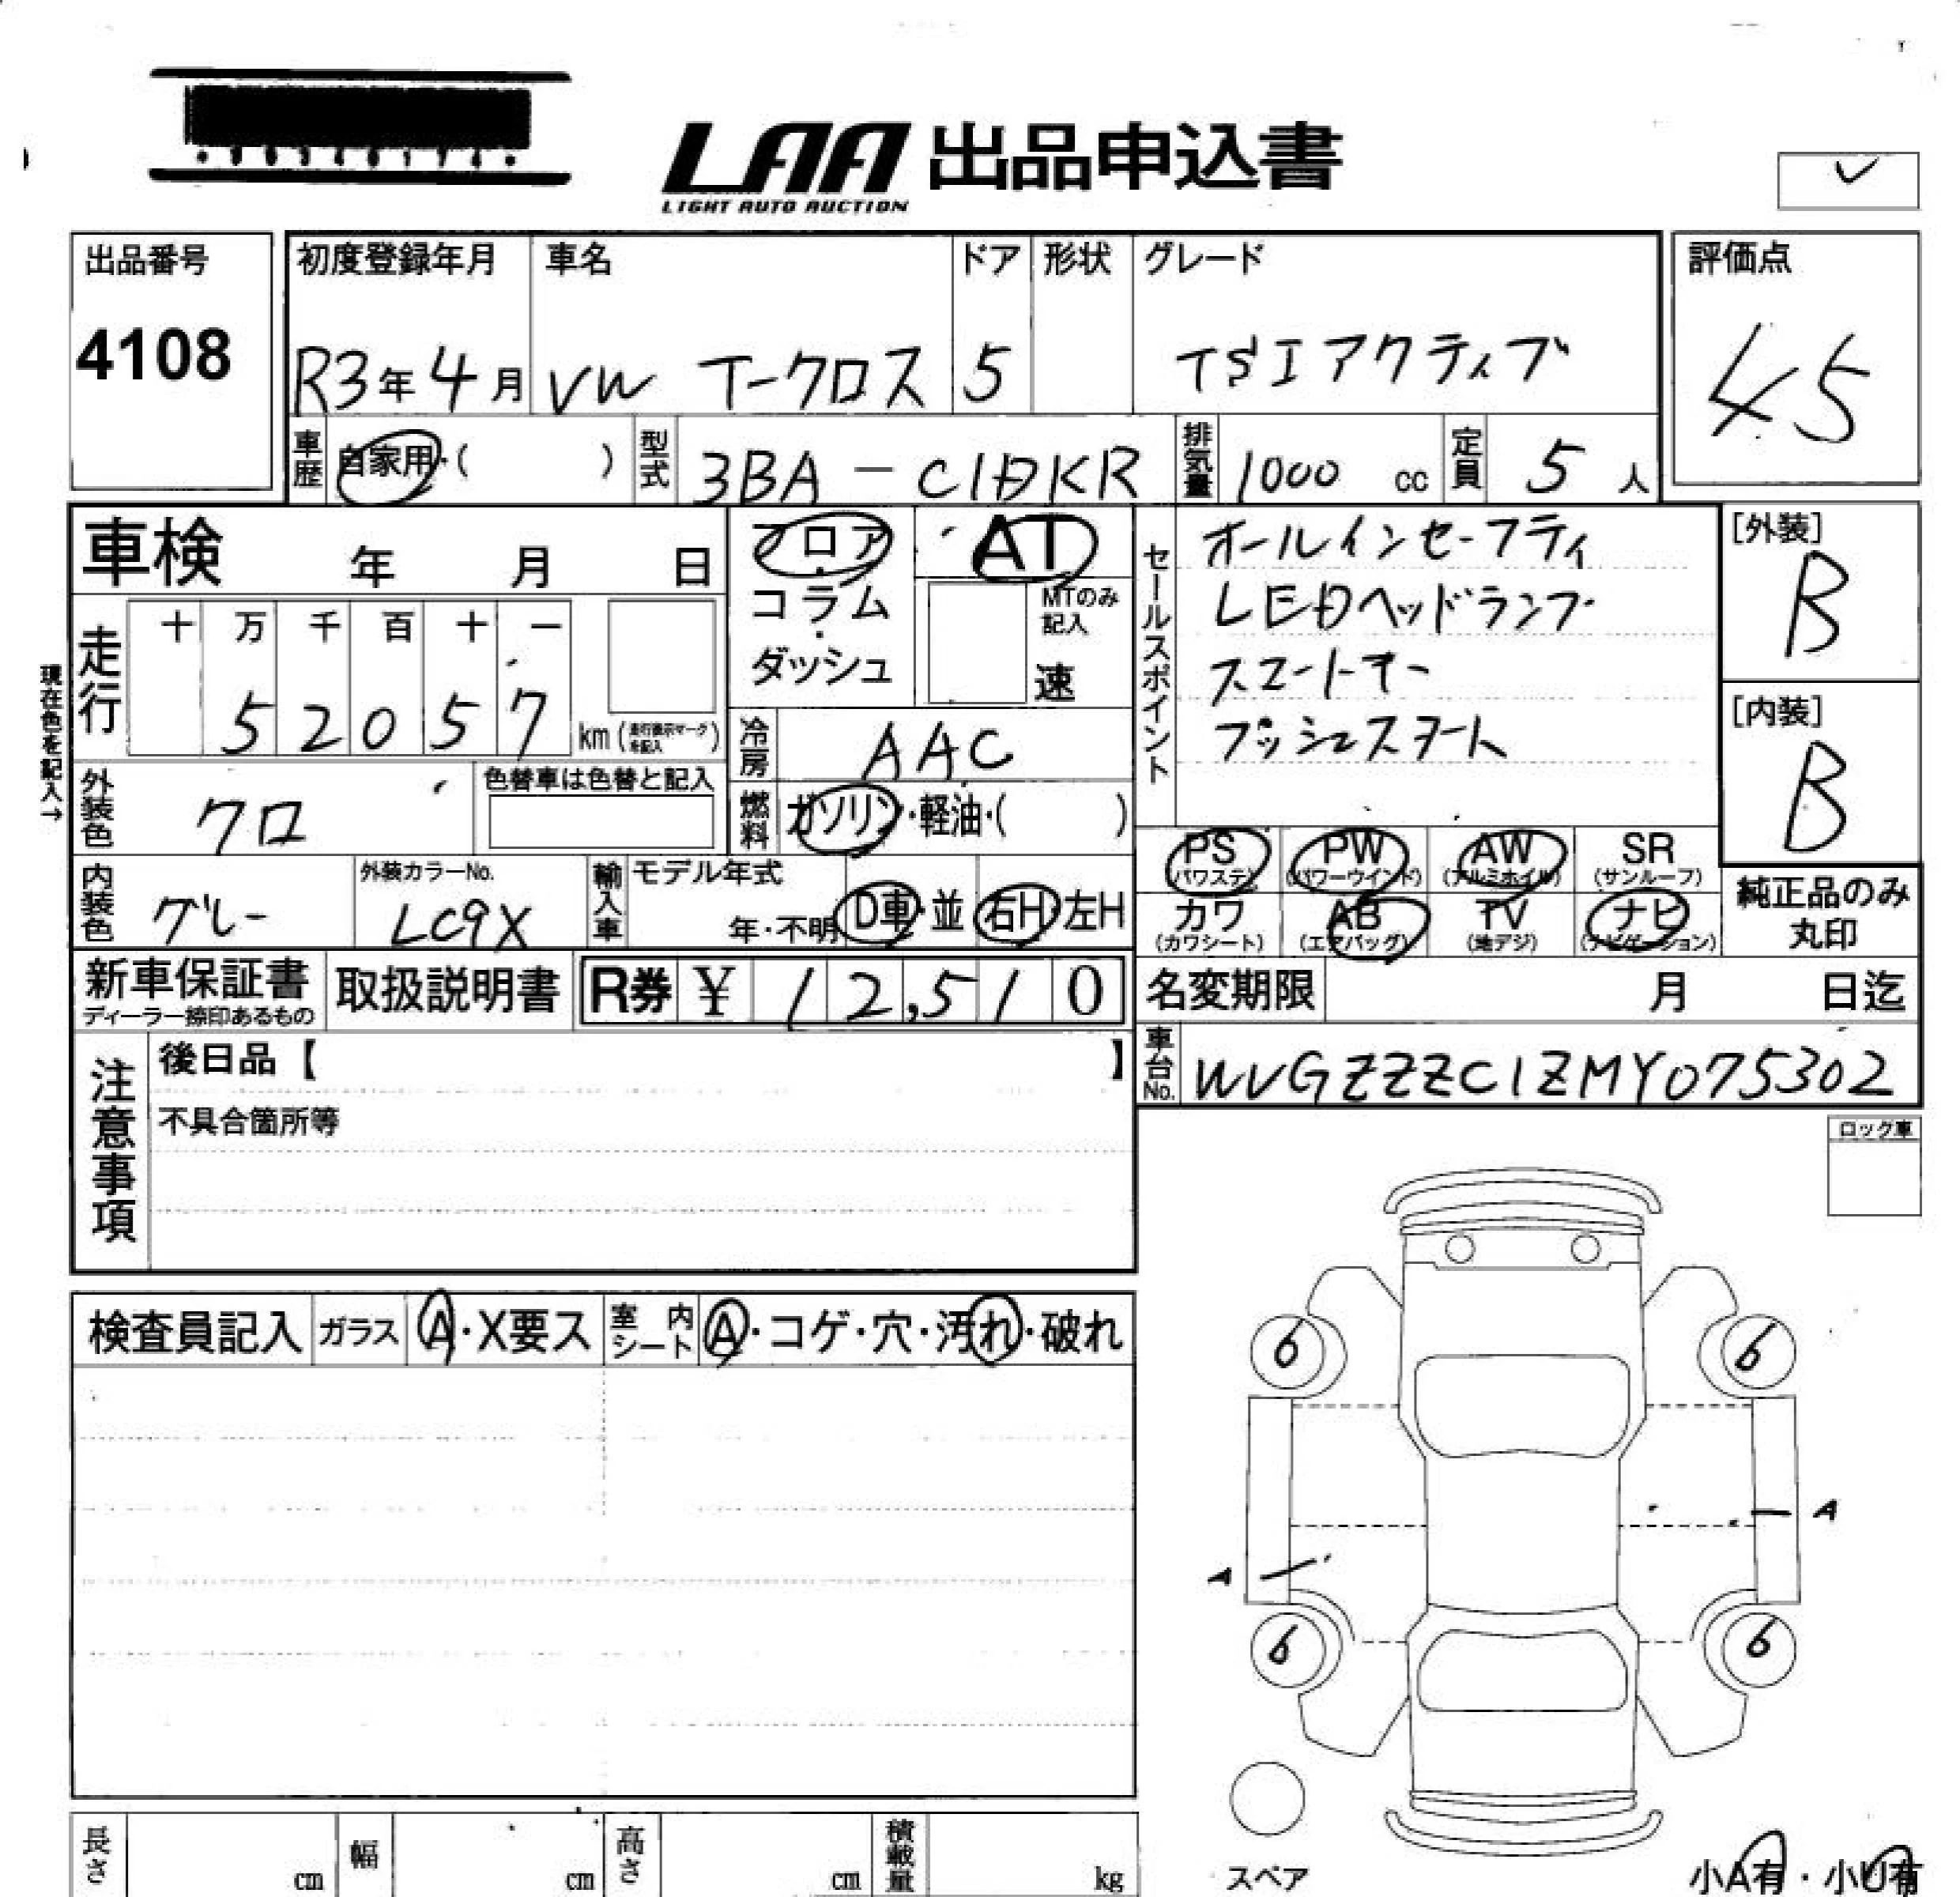 LAA 出品申込書
LIGHT AUTO AUCTION
出品番号
4108
初度登録年月 車名 ドア 形状 グレード
R3年4月 VW T-クロス 5 TSIアクティブ
評価点
45
車歴 自家用・( ) 型式 3BA-C1DKR 排気量 1000 cc 定員 5人
車検 年 月 日
フロア・コラム・ダッシュ
AT
MTのみ記入
速
現在色を記入→
走行
十 万 千 百 十 一
5 2 0 5 7
km (走行表示マークを記入)
冷房 AAC
外装色 クロ
色替車は色替と記入
燃料 ガソリン・軽油・( )
内装色 グレー
外装カラーNo.
LC9X
輸入車 モデル年式
年・不明 D車・並 右H・左H
セールスポイント
オールインセーフティ
LEDヘッドランプ
スマートキー
プッシュスタート
[外装]
B
[内装]
B
PS PW AW SR
(パワステ) (パワーウインド) (アルミホイル) (サンルーフ)
カワ AB TV ナビ
(カワシート) (エアバッグ) (地デジ) (ナビゲーション)
純正品のみ
丸印
新車保証書
ディーラー捺印あるもの
取扱説明書 R券 ¥ 12,510
名変期限 月 日迄
車台No. WVGZZZC1ZMY075302
注意事項
後日品【 】
不具合箇所等
ロック車
検査員記入 ガラス A・X要ス 室内シート A・コゲ・穴・汚れ・破れ
6 6
A
A
6 6
スペア
小A有・小U有
長さ cm 幅 cm 高さ cm 積載量 kg